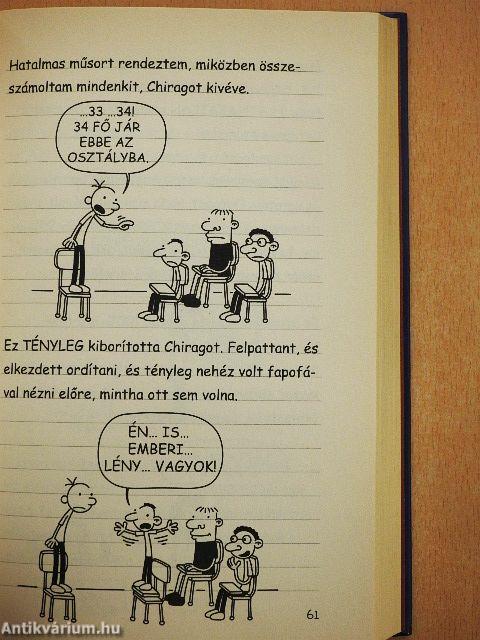 Hatalmas műsort rendeztem, miközben össze-
számoltam mindenkit, Chiragot kivéve.
...33 ...34!
34 FŐ JÁR
EBBE AZ
OSZTÁLYBA.
Ez TÉNYLEG kiborította Chiragot. Felpattant, és
elkezdett ordítani, és tényleg nehéz volt fapofá-
val nézni előre, mintha ott sem volna.
ÉN... IS...
EMBERI...
LÉNY... VAGYOK!
61
Antikvárium.hu